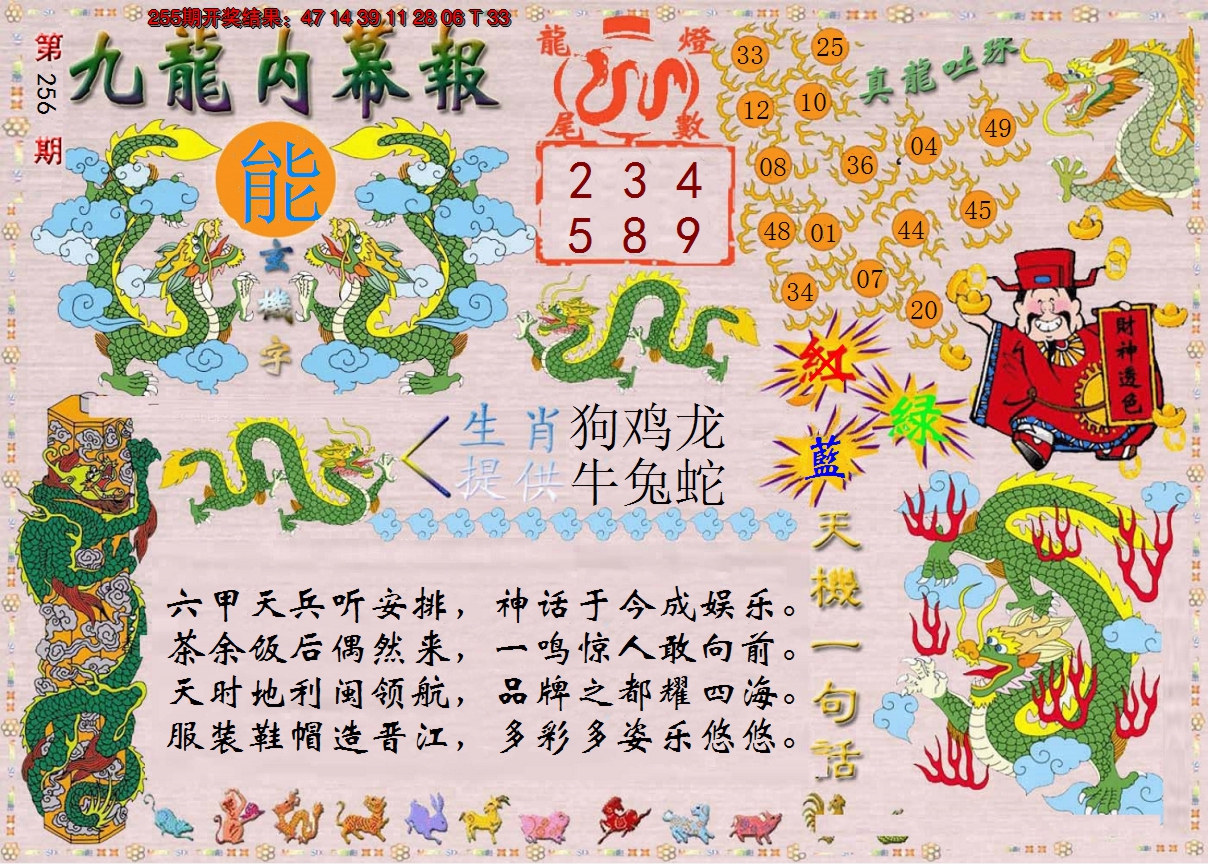 255期开奖结果：47 14 39 11 28 06 T 33
第256期
九龍内幕報
能
玄機字
龍燈尾數
2 3 4
5 8 9
真龍吐珠
33 25
12 10
04 49
08 36
45
48 01 44
07
34
20
財神透色
紅
綠
藍
生肖 狗鸡龙
提供 牛兔蛇
天機一句話
六甲天兵听安排，神话于今成娱乐。
茶余饭后偶然来，一鸣惊人敢向前。
天时地利闽领航，品牌之都耀四海。
服装鞋帽造晋江，多彩多姿乐悠悠。